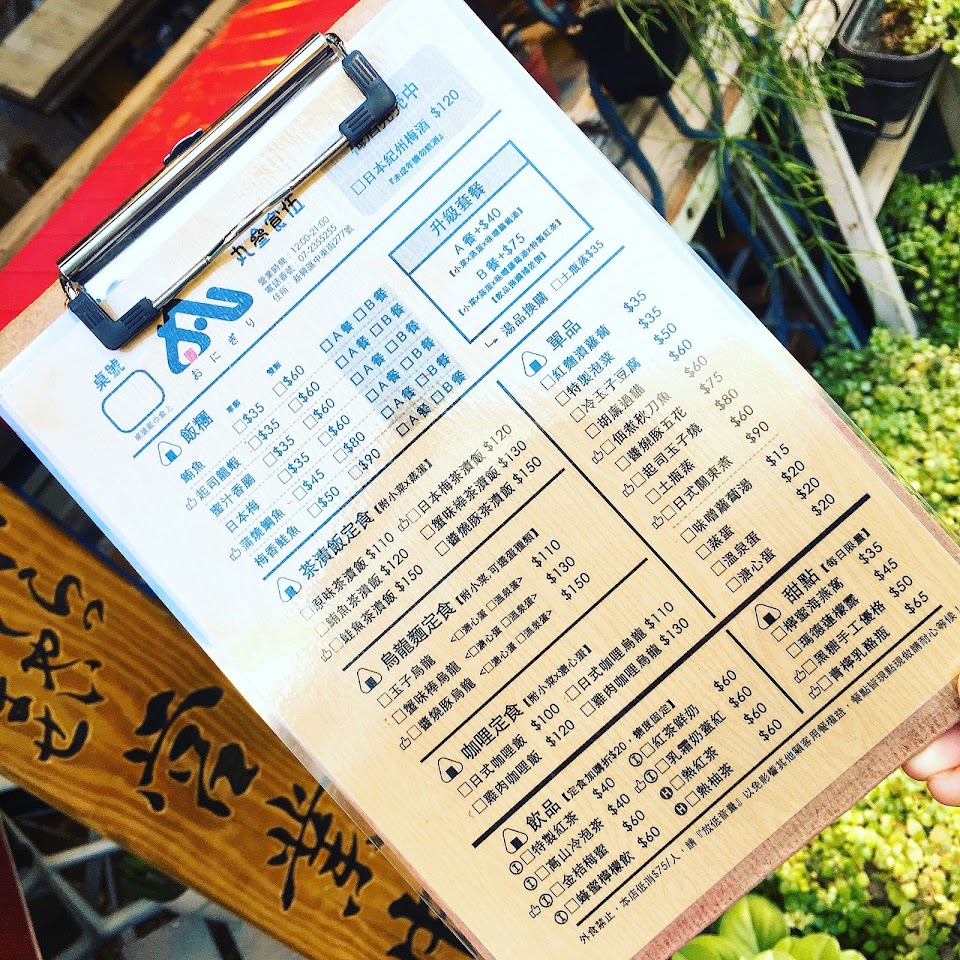 中
□日本紀州梅酒 $120
『未成年請勿飲酒』
丸飯食坊
營業時間：12:00-21:00
電話番號：07-2355255
住所：新興區中東街277號
おにぎり
桌號
升級套餐
A餐+$40
【小菜x湯蛋x味噌蘿蔔湯】
B餐+$75
【小菜x蒸蛋x味噌蘿蔔湯x特製紅茶】
【飲品換購補差價】
湯品換購 □土瓶蒸$35
飯糰 單點 雙割
鮪魚 □$35 □$60 □A餐 □B餐
起司龍蝦 □$35 □$60 □A餐 □B餐
蜜汁香腸 □$35 □$60 □A餐 □B餐
日本梅 □$35 □$60 □A餐 □B餐
蒲燒鯛魚 □$45 □$80 □A餐 □B餐
梅香鮭魚 □$50 □$90 □A餐 □B餐
茶漬飯定食【附小菜x蒸蛋】
□原味茶漬飯 $110 □日本梅茶漬飯 $120
□鮪魚茶漬飯 $120 □蟹味棒茶漬飯 $130
□鮭魚茶漬飯 $150 □醬燒豚茶漬飯 $150
烏龍麵定食【附小菜 可選蛋種類】
□玉子烏龍 <□溏心蛋 □溫泉蛋> $110
□蟹味棒烏龍 <□溏心蛋 □溫泉蛋> $130
□醬燒豚烏龍 <□溏心蛋 □溫泉蛋> $150
咖哩定食【附小菜x溏心蛋】
□日式咖哩飯 $100 □日式咖哩烏龍 $110
□雞肉咖哩飯 $120 □雞肉咖哩烏龍 $130
單品
□紅麴漬蘿蔔 $35
□特製泡菜 $35
□冷玉子豆腐 $50
□胡麻過貓 $60
□佃煮秋刀魚 $60
□醬燒豚五花 $75
□起司玉子燒 $80
□土瓶蒸 $60
□日式關東煮 $90
□味噌蘿蔔湯 $15
□蒸蛋 $20
□溫泉蛋 $20
□溏心蛋 $20
甜點【每日限量】
□檸蜜海燕窩 $35
□瑪德蓮檬露 $45
□黑糖手工優格 $50
□青檸乳酪瓶 $65
飲品【定食加購折$20，糖度固定】
□特製紅茶 $40 □紅茶鮮奶 $60
□高山冷泡茶 $40 □乳霜奶蓋紅 $60
□金桔梅蜜 $60 □熱紅茶 $60
□蜂蜜檸檬飲 $60 □熱柚茶 $60
外食禁止，本店低消$75/人，請『放低音量』以免影響其他顧客用餐權益，餐點皆現點現做請耐心等候！
营業